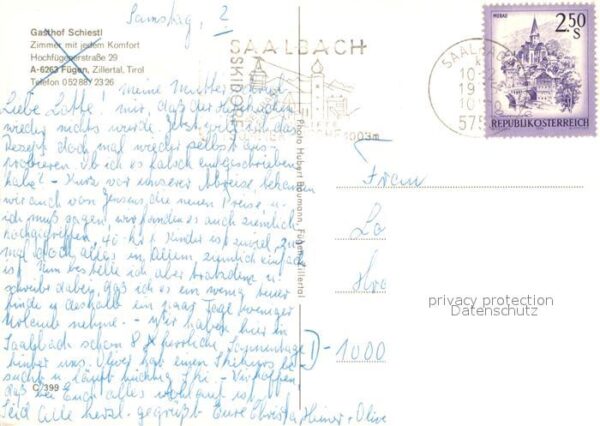 Samstag, 2
Gasthof Schiestl
Zimmer mit jedem Komfort
Hochfügenerstraße 29
A-6263 Fügen, Zillertal, Tirol
Telefon 05288/2326
Liebe Lotte! meine Mutter
mir, daß der
wieder nichts wurde. Jetzt
Rezept doch mal wieder selbst aus-
probieren. Ob ich es falsch aufgeschrieben
habe? - Kurz vor unserer Abreise bekamen
wir auch von Jensens die neuen Preise u.
ich muß sagen, wir fanden es auch ziemlich
40.- Kinder ist zuviel, zu-
mal doch alles in Allem ziemlich einfach
ist. Nun bestelle ich aber trotzdem u.
schreibe dabei, daß ich es ein wenig teuer
finde u. deshalb ein paar Tage weniger
Urlaub nehme. - Wir haben hier in
Saalbach schon 8 herrliche Sonnentage
hinter uns. Oliver hat einen Skikurs be-
sucht u. läuft tüchtig Ski. - Wir hoffen
daß bei Euch alles wohlauf ist.
Seid alle herzl. gegrüßt Eure Christa, Heiner + Olive
C 399
SAALBACH
SKIDORF
1003m
Photo Hubert Baumann, Fügen, Zillertal
SAALBACH
10
19
10
575
MURAU
2.50 S
REPUBLIK ÖSTERREICH
Frau
Lo
D-1000
privacy protection
Datenschutz